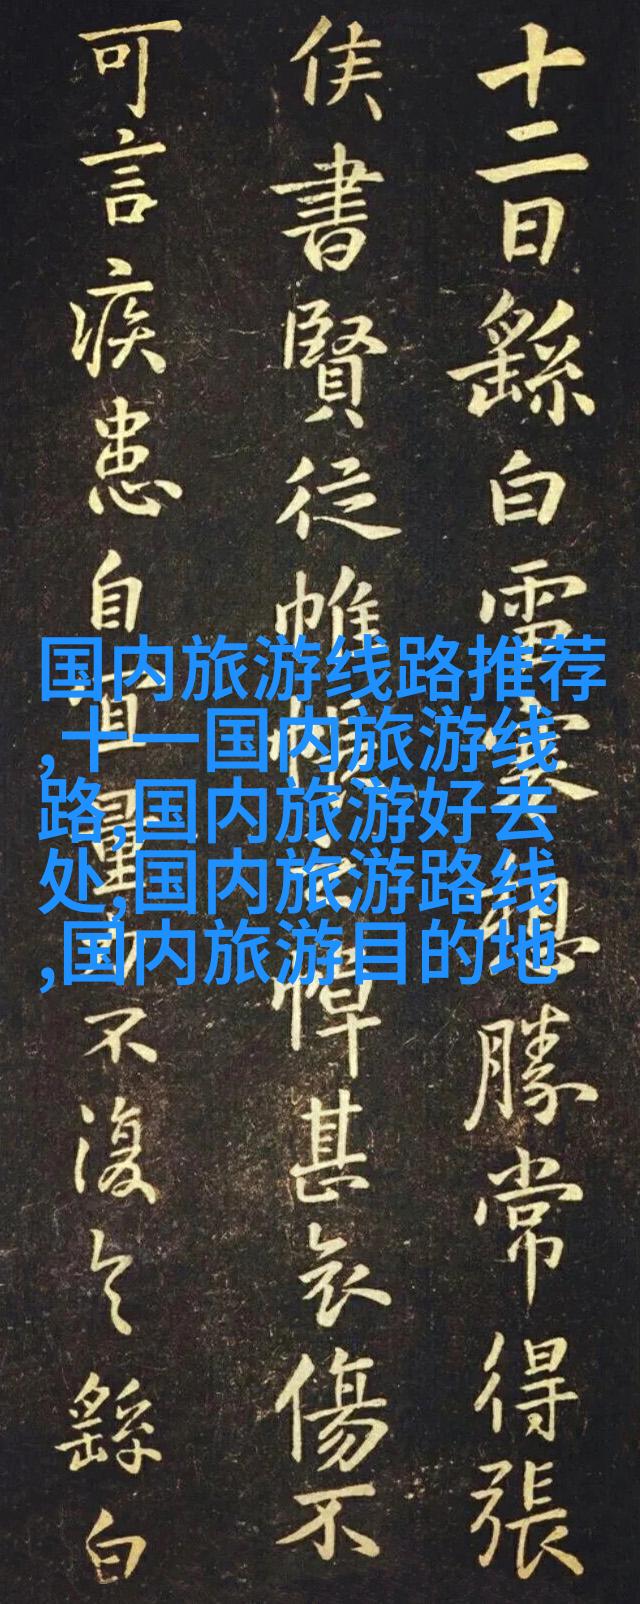 十二日繇白雪寒想勝常得張
侯書賢從帷之悼甚哀傷不
可言疾患自宜量不復繇白
国内旅游线路推荐
,十一国内旅游线
路,国内旅游好去
处,国内旅游路线
,国内旅游目的地